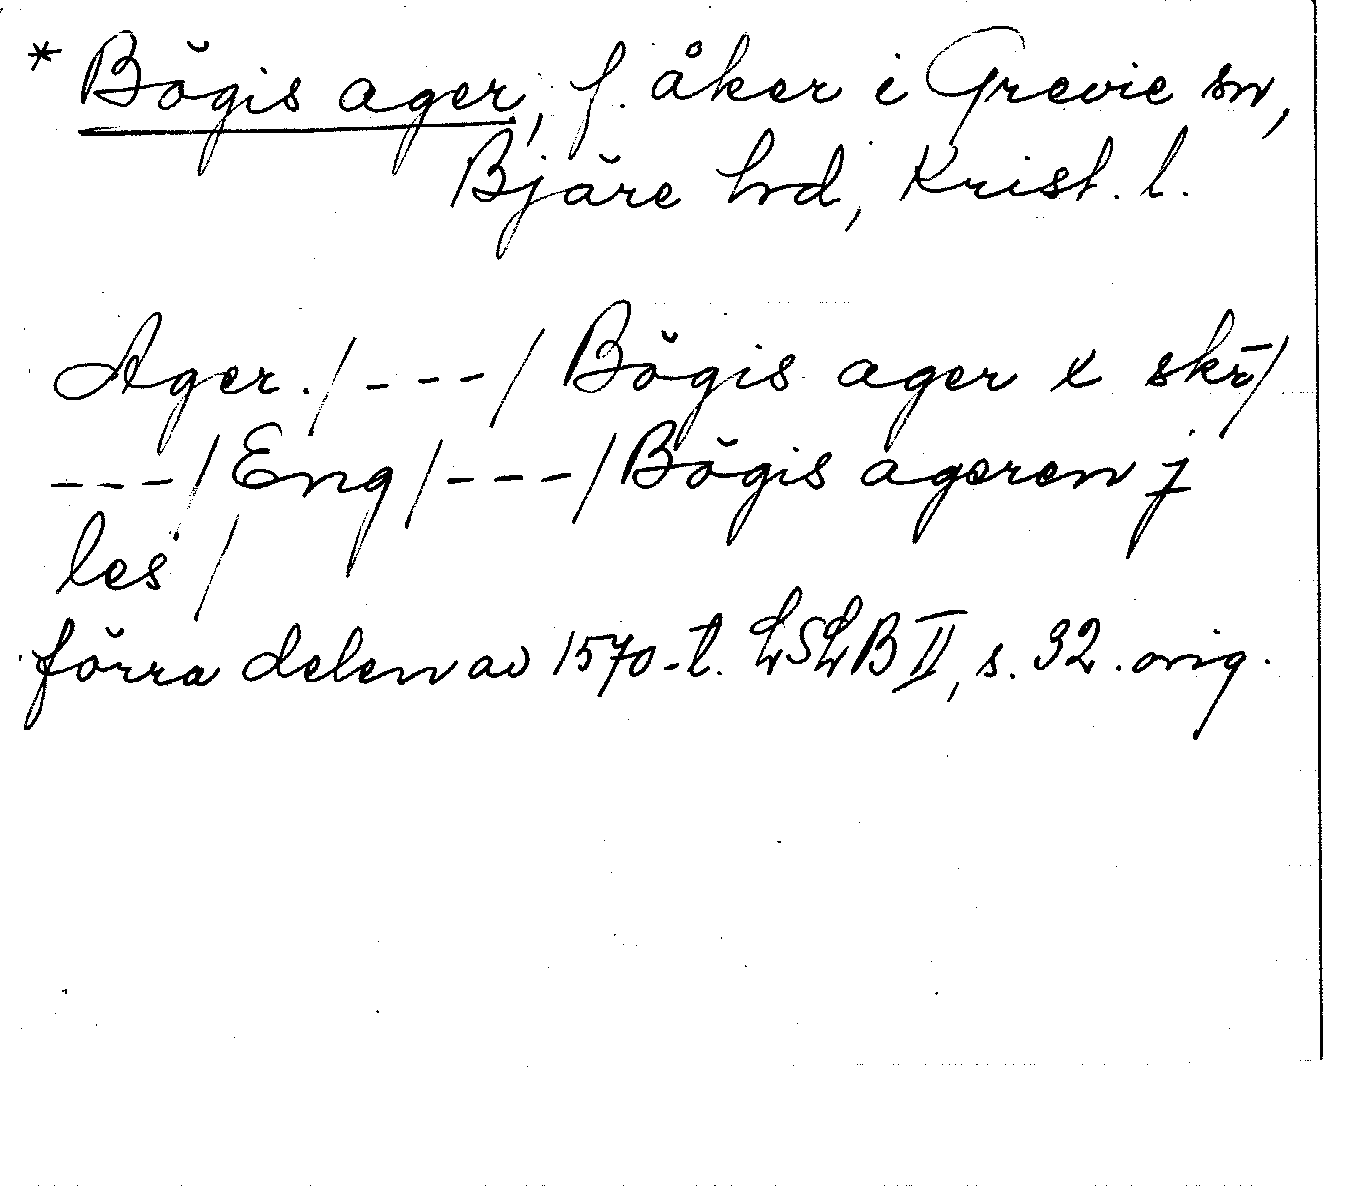 * Bögis ager, f. åker i Grevie sn,
Bjäre hd, Krist. l.
Ager./---/ Bögis ager x skr̄/
---/Eng/---/Bögis ageren j
les/
förra delen av 1570-t. LSLB II, s. 32. orig.